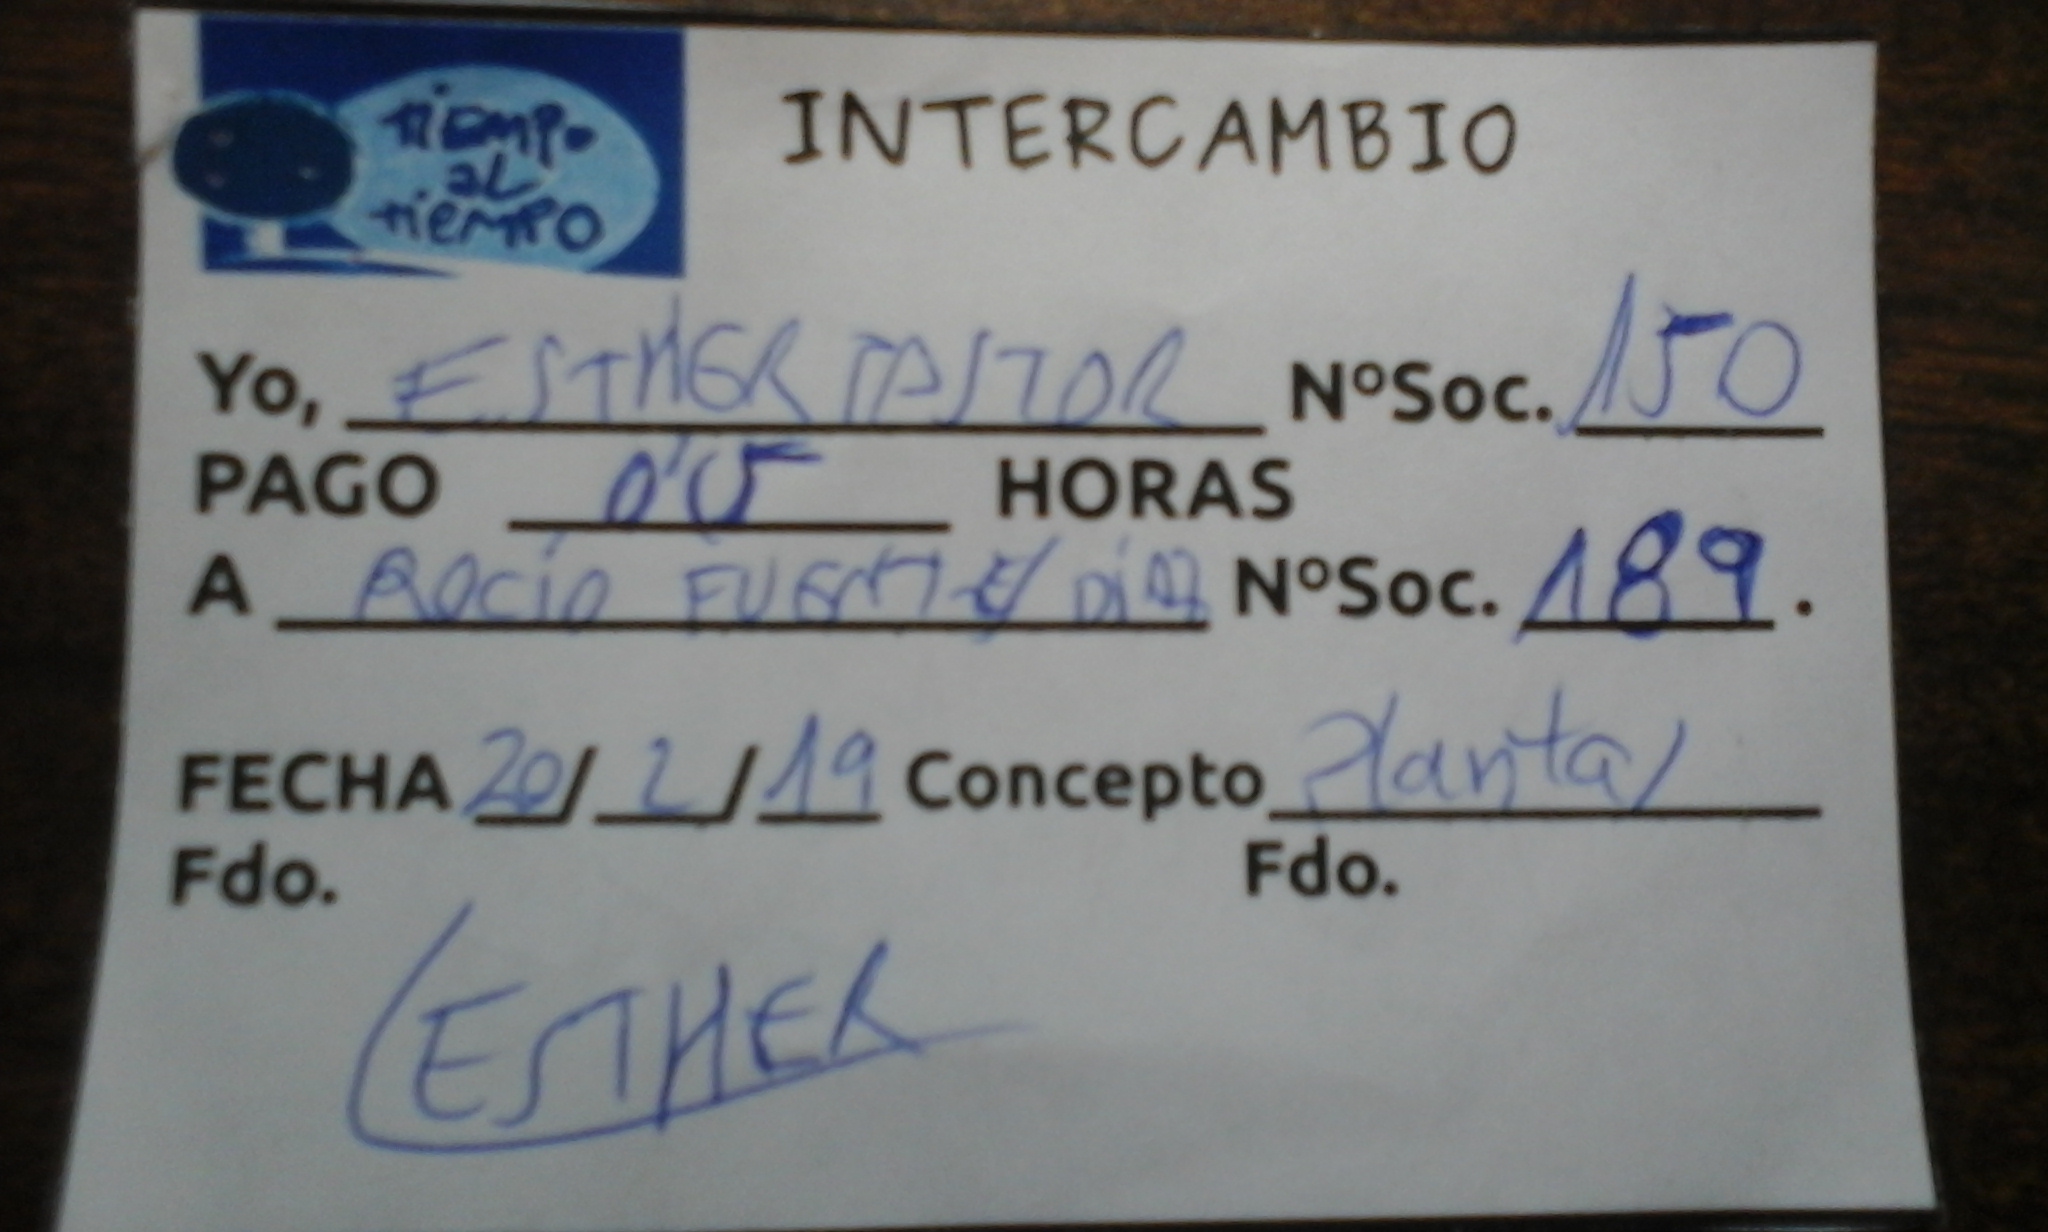 tiempo
al
tiempo
INTERCAMBIO
Yo, ESTHER PASTOR NºSoc. 150
PAGO 0'5 HORAS
A ROCÍO FUENTES DÍAZ NºSoc. 189.
FECHA 20/2/19 Concepto Plantas
Fdo. Fdo.
ESTHER